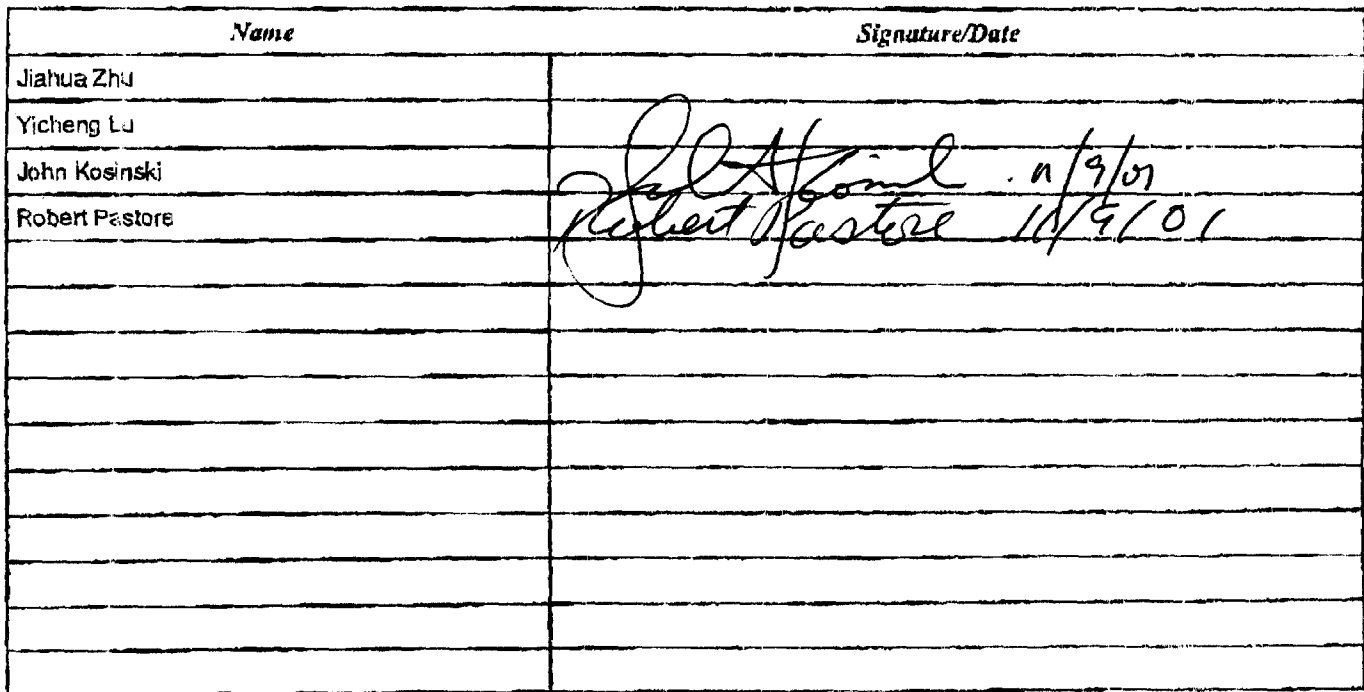 Name Signature/Date
Jiahua Zhu
Yicheng Lu
John Kosinski 11/9/01
Robert Pastore Robert Pastore 11/9/01